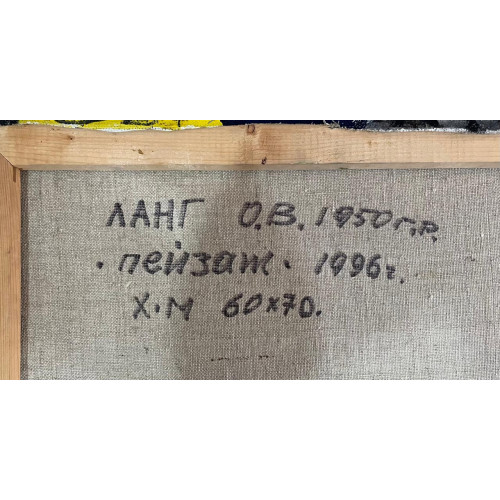 ЛАНГ О.В. 1950г.р.
• пейзаж • 1996г.
Х.М 60х70.